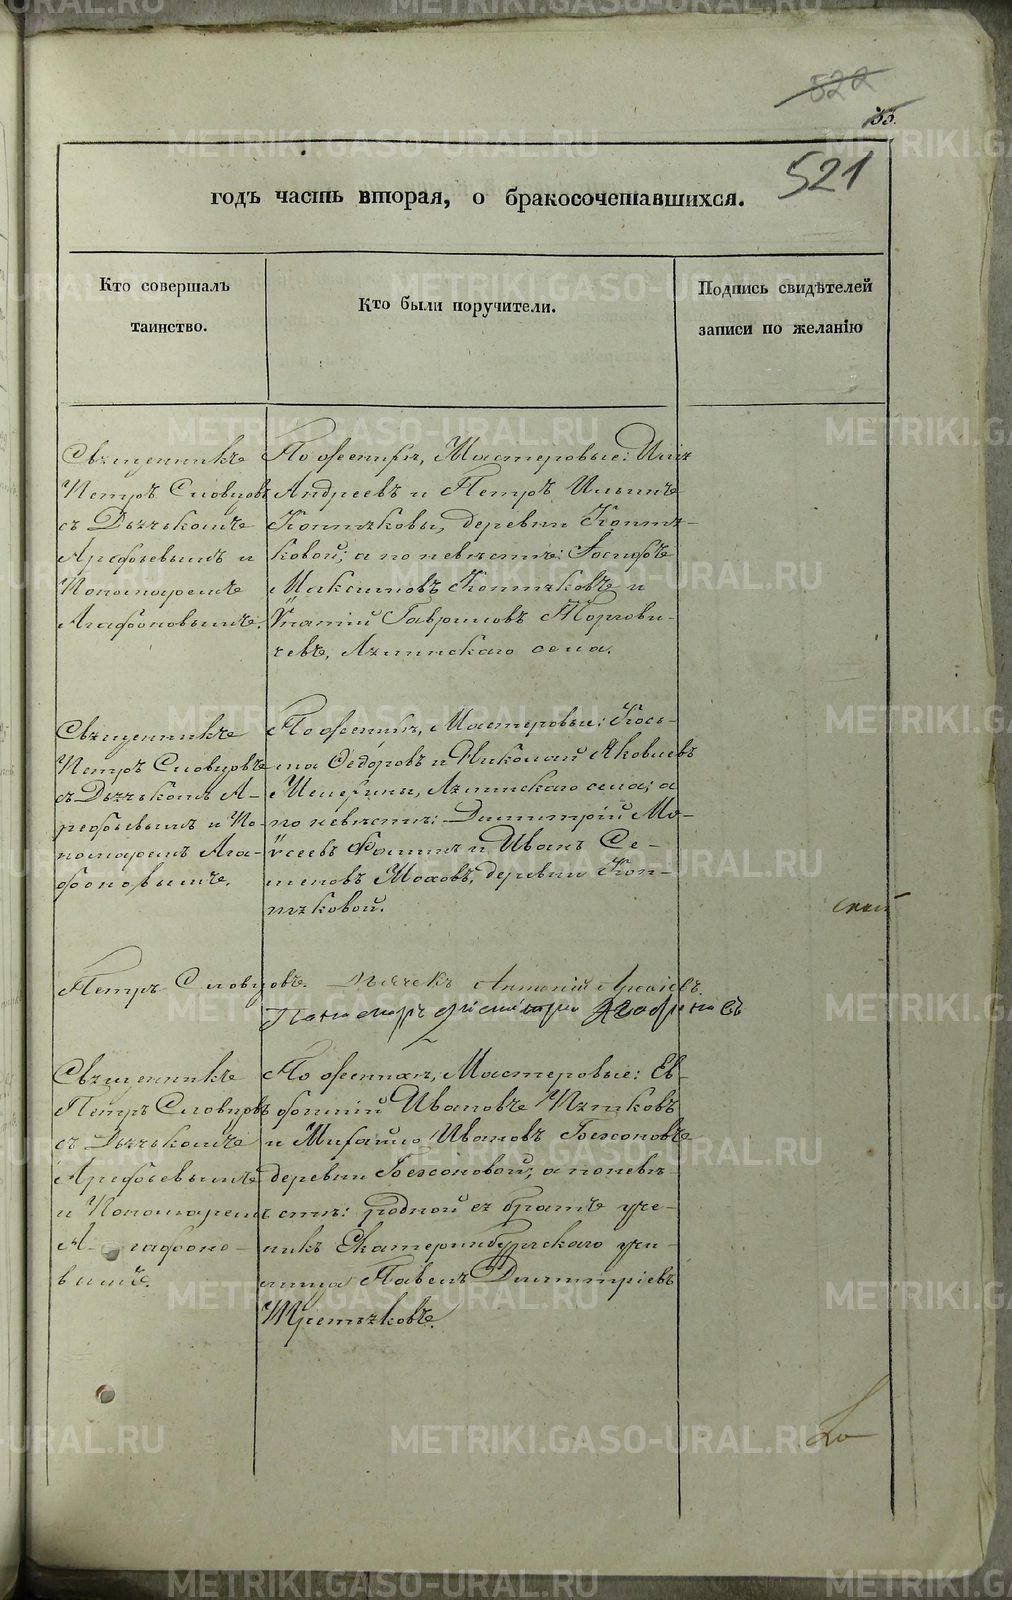 522
33.
521
годъ часть вторая, о бракосочетавшихся.
Кто совершалъ
таинство.
Кто были поручители.
Подпись свидѣтелей
записи по желанію
Священникъ
Петръ Словцовъ
съ Дьячькомъ
Арефьевымъ и
Пономаремъ
Агафоновымъ.
По женихѣ, Мастеровые: Илья
Андреевъ и Петръ Ильинъ
Коптяковы, деревни Коптя-
ковой; а по невѣстѣ: Іосифъ
Максимовъ Коптяковъ и
Ѵпатій Гавриловъ Торгови-
чевъ, Аятскаго села.
Священникъ
Петръ Словцовъ
съ Дьячькомъ А-
рефьевымъ и По-
номаремъ Ага-
фоновымъ.
По женихѣ, Мастеровые: Кось-
ма Ѳедоровъ и Николай Яковлевъ
села; а
по невѣстѣ: Димитрій Мо-
ѵсеевъ Фоминъ и Иванъ Се-
меновъ Мохов, деревни Коп-
тяковой.
Петръ Словцовъ. Дьячекъ Антоній Арефьевъ.
Пономарь Агафоновъ
Священникъ
Петръ Словцовъ
съ Дьячькомъ
Арефьевымъ
и Пономаремъ
А-гафоно-
вымъ.
По женихѣ, Мастеровые: Ев-
фимій Ивановъ Пятковъ
и Михайло Ивановъ Божоновъ
деревни Божоновой; а по невѣ-
стѣ: родной ея братъ уче-
никъ Екатеринбургскаго учи-
лища Павелъ Димитріевъ
Третьяковъ.
METRIKI.GASO-URAL.RU